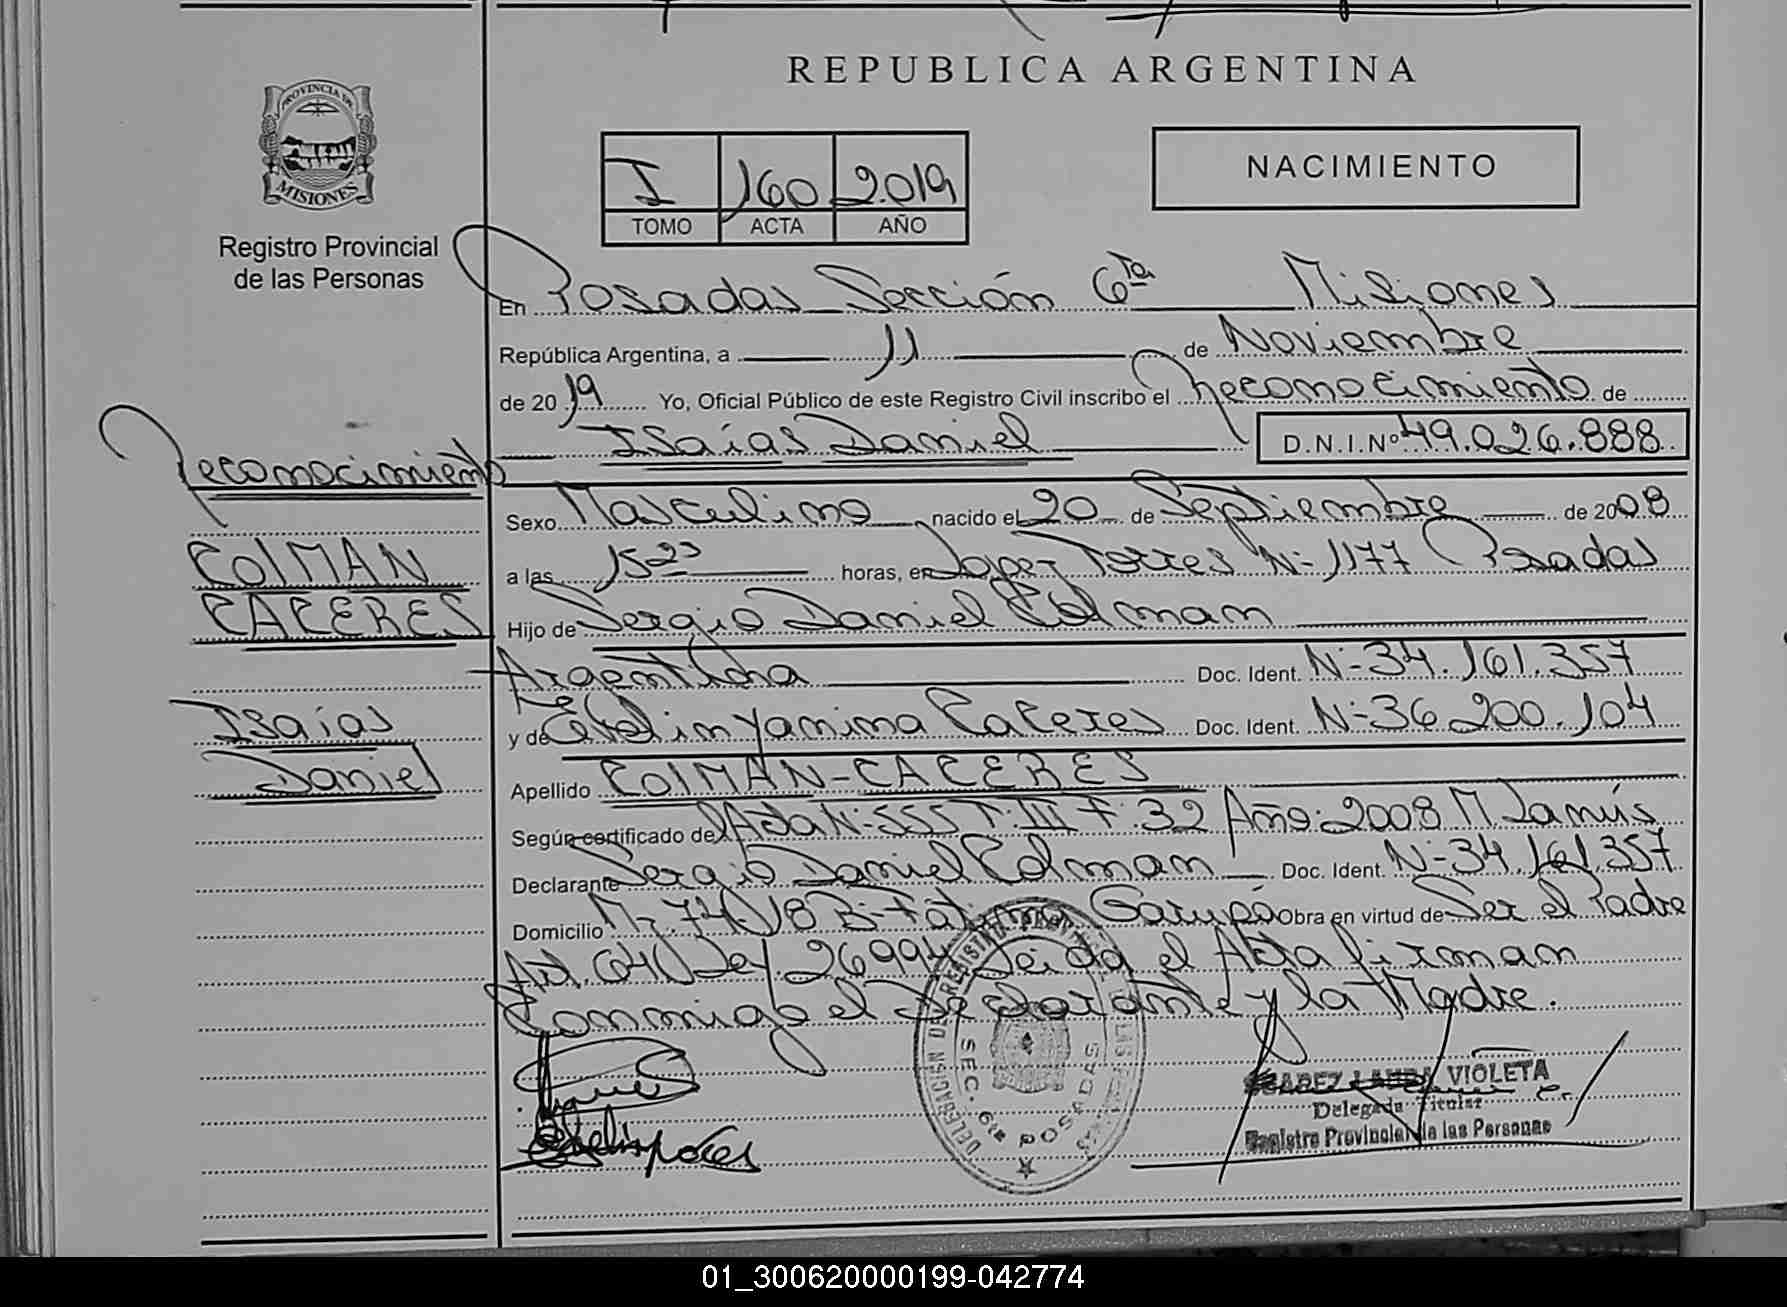 REPUBLICA ARGENTINA
PROVINCIA DE
MISIONES
Registro Provincial
de las Personas
I 160 2.019
TOMO ACTA AÑO
NACIMIENTO
En Posadas Sección 6ta Misiones
República Argentina, a 11 de Noviembre
de 2019 Yo, Oficial Público de este Registro Civil inscribo el Reconocimiento de
Isaías Daniel D.N.I.Nº 49.026.888
Reconocimiento
Sexo Masculino nacido el 20 de Septiembre de 2008
COlMAN
a las 15 horas, en Lopez Torres N- 1177 Posadas
CACERES
Hijo de Sergio Daniel Colman
Argentina Doc. Ident. N- 34.161.357
Isaías
y de Evelin Yanina Caceres Doc. Ident. N- 36.200.104
Daniel
Apellido COlMAN-CACERES
Según certificado de Acta N- 555 T: III F: 32 Año: 2008 Lanús
Declarante Sergio Daniel Colman Doc. Ident. N- 34.161.357
Domicilio Garupá Obra en virtud de Ser el Padre
Art. 64 Ley 26994 Leida el Acta firman
Conmigo el Declarante y la Madre.
DELEGACION DEL REGISTRO PROVINCIAL DE LAS PERSONAS
SEC. 6ta POSADAS
SUAREZ LAURA VIOLETA
Delegada Titular
Registro Provincial de las Personas
01_300620000199-042774